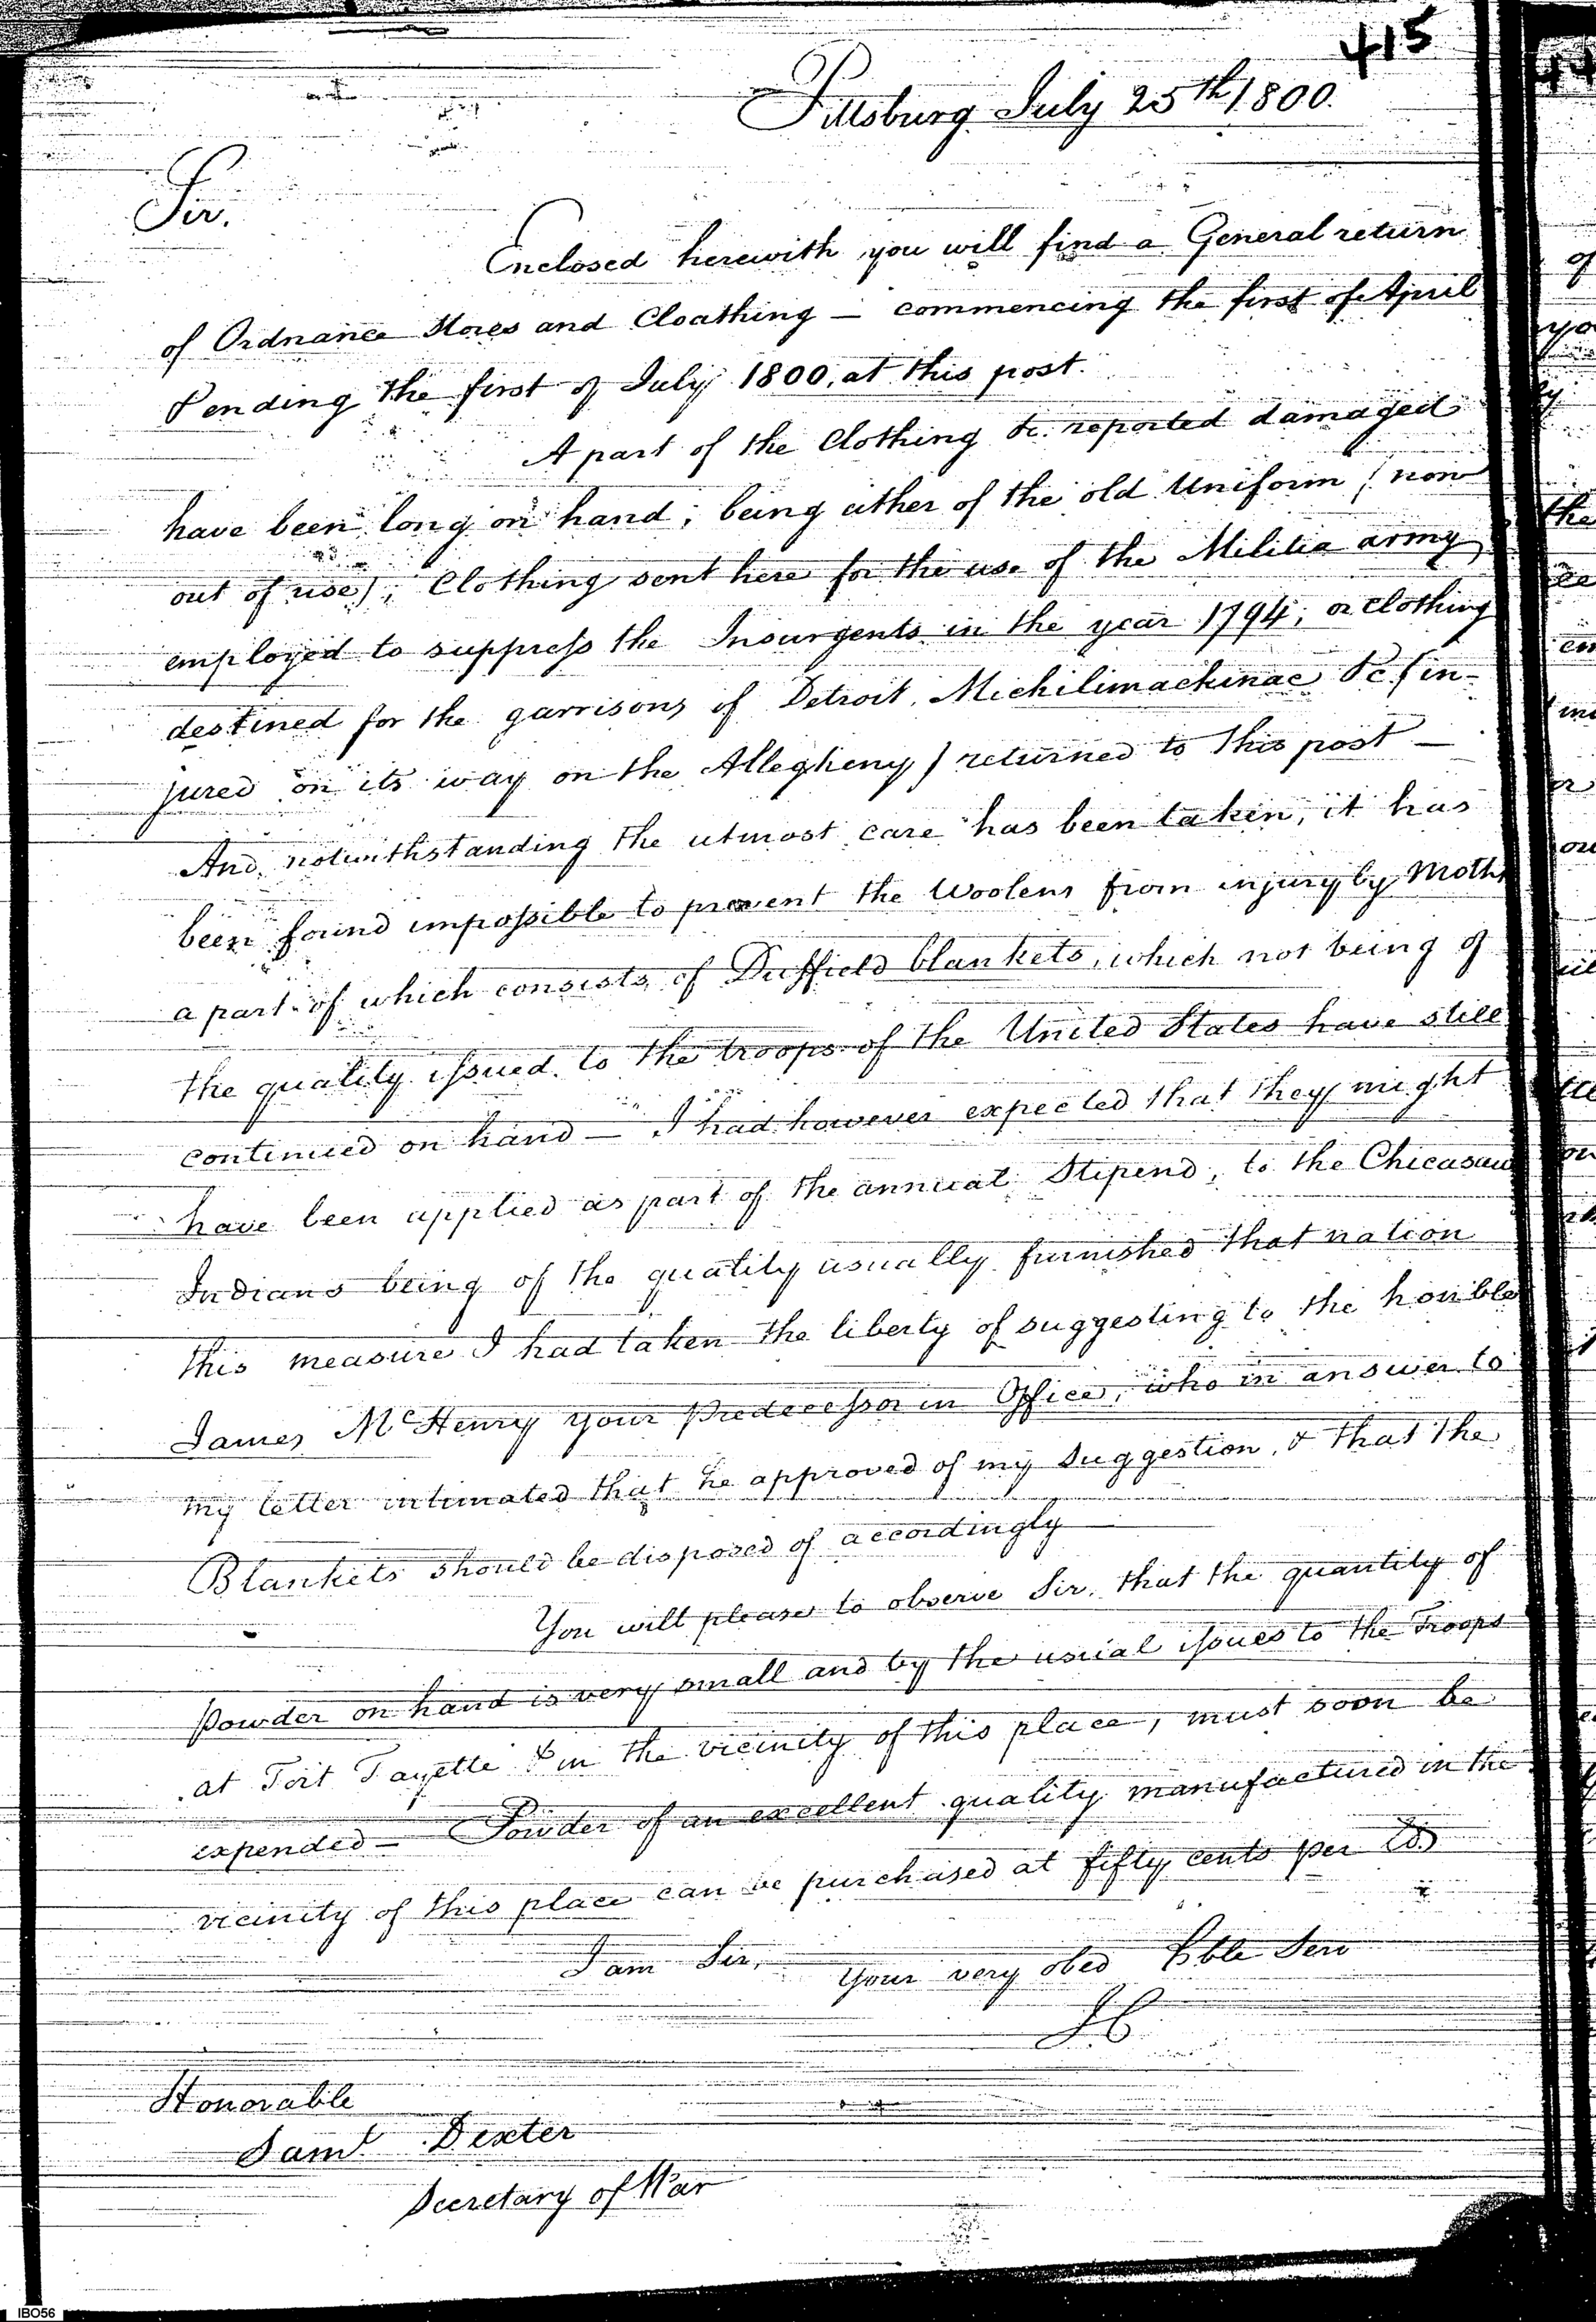 415
Pittsburg July 25th 1800.
Sir.
Enclosed herewith you will find a General return
of Ordnance Stores and Cloathing — commencing the first of April
& ending the first of July 1800, at this post.
A part of the Clothing &c. reported damaged
have been long on hand; being either of the old Uniform (now
out of use); Clothing sent here for the use of the Militia army
employed to suppress the Insurgents in the year 1794; or Clothing
destined for the garrisons of Detroit, Michilimackinac &c (in-
jured on its way on the Allegheny) returned to this post —
And notwithstanding the utmost care has been taken, it has
been found impossible to prevent the Woolens from injury by Moths
a part of which consists of Duffield blankets, which not being of
the quality issued to the troops of the United States have still
continued on hand — I had however expected that they might
have been applied as part of the annual Stipend, to the Chicasaw
Indians being of the quality usually furnished that nation
this measure I had taken the liberty of suggesting to the honble
James McHenry your Predecessor in Office, who in answer to
my letter intimated that he approved of my Suggestion, & that the
Blankets should be disposed of accordingly
You will please to observe Sir, that the quantity of
Powder on hand is very small and by the usual issues to the Troops
at Fort Fayette & in the vicinity of this place, must soon be
expended — Powder of an excellent quality manufactured in the
vicinity of this place can be purchased at fifty cents per lb
I am Sir,
Your very obed Hble Serv
Honorable
Saml Dexter
Secretary of War
IBO56